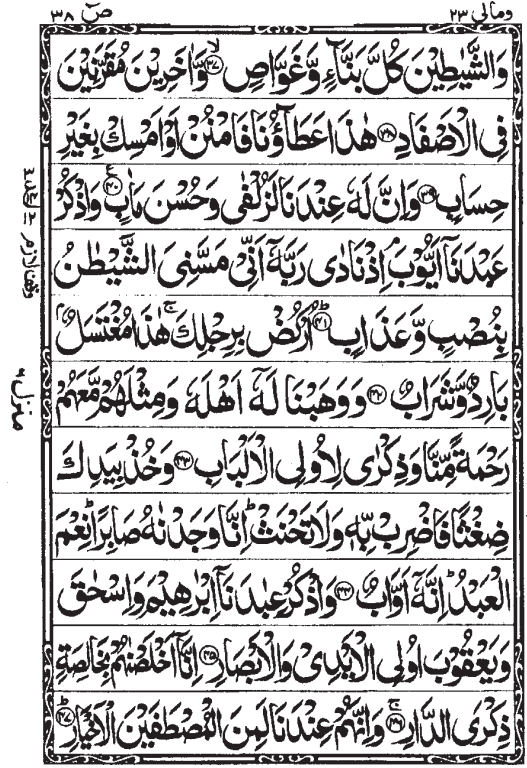 ومالی ٢٣
صٓ ٣٨
وَالشَّيٰطِيْنَ كُلَّ بَنَّآءٍ وَّغَوَّاصٍ ۙ﴿٣٧﴾ وَّاٰخَرِيْنَ مُقَرَّنِيْنَ
فِى الْاَصْفَادِ ﴿٣٨﴾ هٰذَا عَطَآؤُنَا فَامْنُنْ اَوْ اَمْسِكْ بِغَيْرِ
حِسَابٍ ﴿٣٩﴾ وَاِنَّ لَهٗ عِنْدَنَا لَزُلْفٰى وَحُسْنَ مَاٰبٍ ﴿٤٠﴾ وَاذْكُرْ
عَبْدَنَاۤ اَيُّوْبَ ۘ اِذْ نَادٰى رَبَّهٗۤ اَنِّىْ مَسَّنِىَ الشَّيْطٰنُ
بِنُصْبٍ وَّعَذَابٍ ؕ﴿٤١﴾ اُرْكُضْ بِرِجْلِكَ ۚ هٰذَا مُغْتَسَلٌۢ
بَارِدٌ وَّشَرَابٌ ﴿٤٢﴾ وَوَهَبْنَا لَهٗۤ اَهْلَهٗ وَمِثْلَهُمْ مَّعَهُمْ
رَحْمَةً مِّنَّا وَذِكْرٰى لِاُولِى الْاَلْبَابِ ﴿٤٣﴾ وَخُذْ بِيَدِكَ
ضِغْثًا فَاضْرِبْ بِّهٖ وَلَا تَحْنَثْ ؕ اِنَّا وَجَدْنٰهُ صَابِرًا ؕ نِعْمَ
الْعَبْدُ ؕ اِنَّهٗۤ اَوَّابٌ ﴿٤٤﴾ وَاذْكُرْ عِبٰدَنَاۤ اِبْرٰهِيْمَ وَاِسْحٰقَ
وَيَعْقُوْبَ اُولِى الْاَيْدِىْ وَالْاَبْصَارِ ﴿٤٥﴾ اِنَّاۤ اَخْلَصْنٰهُمْ بِخَالِصَةٍ
ذِكْرَى الدَّارِ ۚ﴿٤٦﴾ وَاِنَّهُمْ عِنْدَنَا لَمِنَ الْمُصْطَفَيْنَ الْاَخْيَارِ ؕ﴿٤٧﴾
منزل ٦